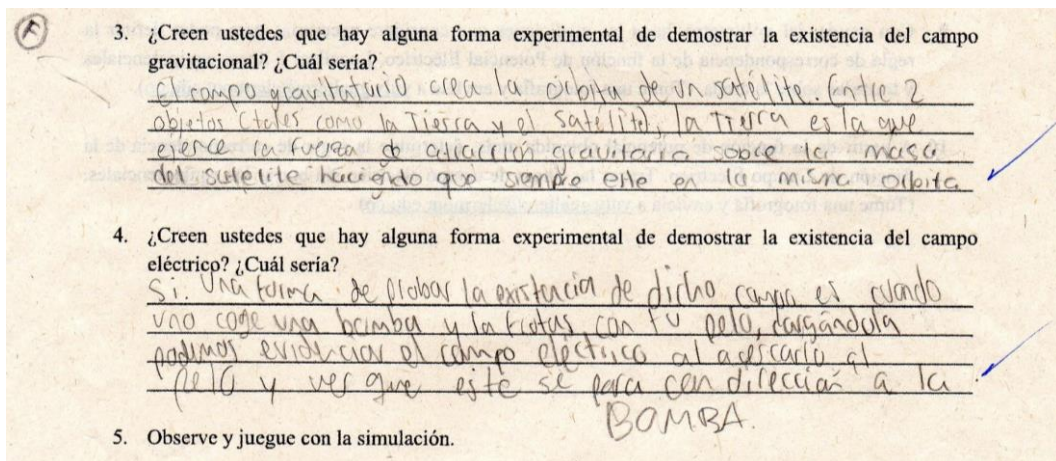 F
3. ¿Creen ustedes que hay alguna forma experimental de demostrar la existencia del campo
gravitacional? ¿Cuál sería?
El campo gravitatorio crea la orbita de un satélite. Entre 2
objetos (tales como la Tierra y el satélite), la Tierra es la que
ejerce la fuerza de atracción gravitatoria sobre la masa
del satelite haciendo que siempre este en la misma orbita
4. ¿Creen ustedes que hay alguna forma experimental de demostrar la existencia del campo
eléctrico? ¿Cuál sería?
Si. Una forma de probar la existencia de dicho campo es cuando
uno coge una bomba y la frotas con tu pelo, cargándola
podemos evidenciar el campo eléctrico al acercarla al
pelo y ver que este se para con dirección a la
BOMBA.
5. Observe y juegue con la simulación.